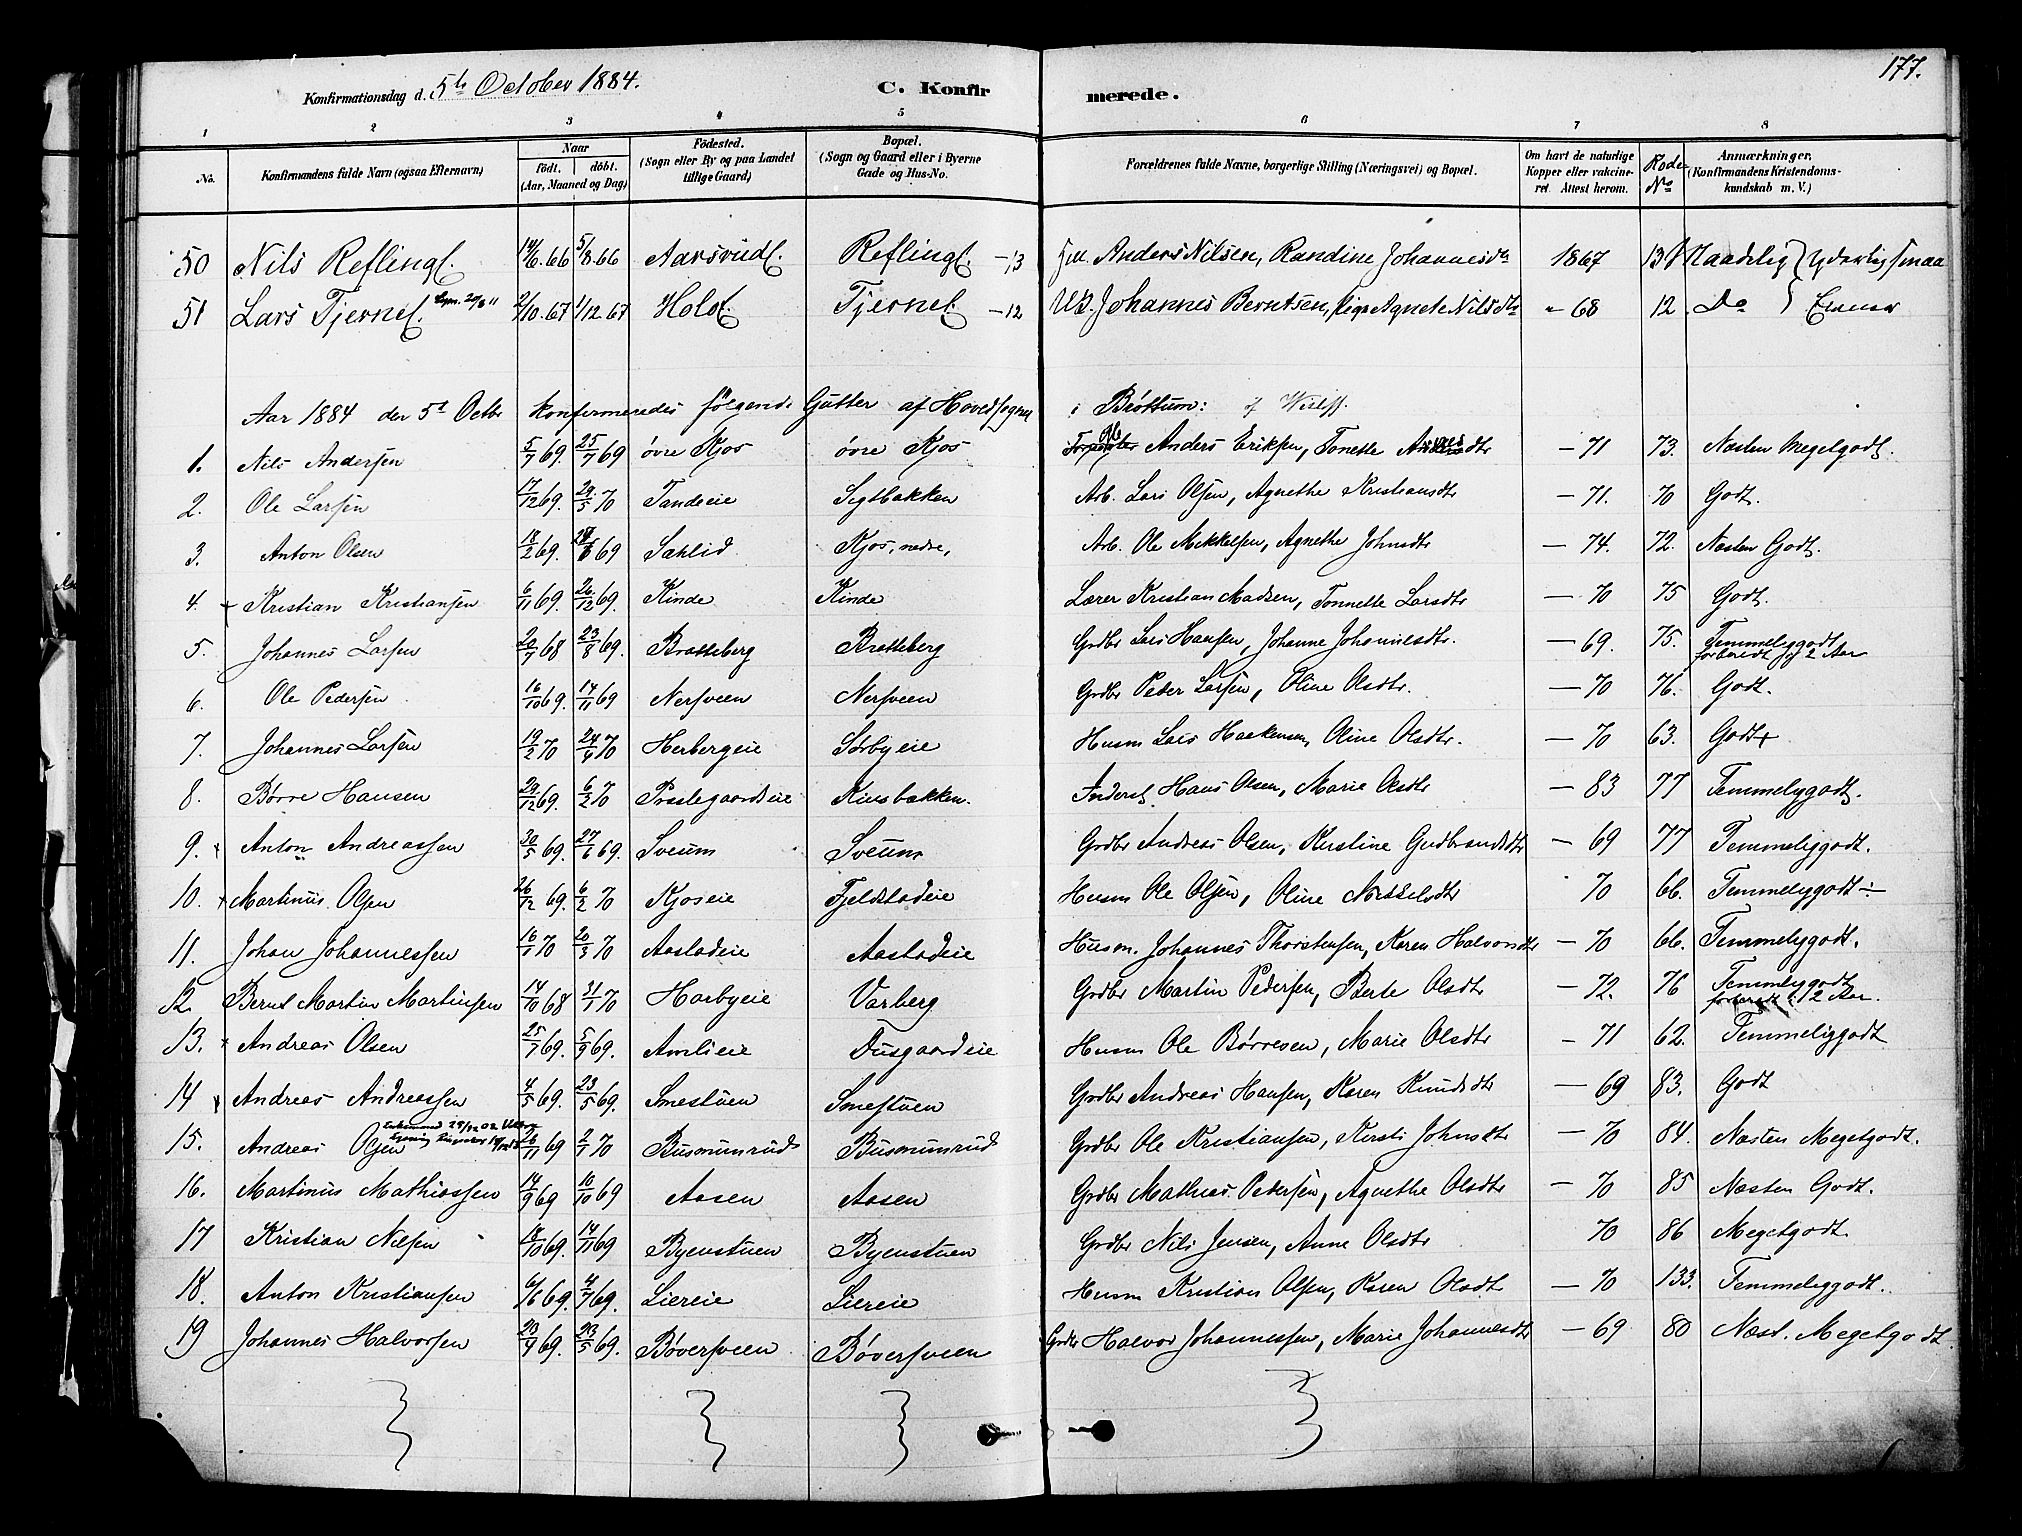 177.
Konfirmationsdag d. 5te October 1884. C. Konfir merede.
1 2 3 4 5 6 7 8
No. Konfirmandens fulde Navn (ogsaa Efternavn) Naar födt. döbt. (Aar, Maaned og Dag) Födested. (Sogn eller By og paa Landet tillige Gaard) Bopæl. (Sogn og Gaard eller i Byerne Gade og Hus-No. Forældrenes fulde Navne, borgerlige Stilling (Næringsvei) og Bopæl. Om havt de naturlige Kopper eller vakcineret. Attest herom. Rode No Anmærkninger. (Konfirmandens Kristendomskundskab m. V.)
50 Nils Reflingl. 14/6.66 5/8.66 Aarsrudl. Reflingl. -13 Anders Nilsen, Randine Johannesdr 1867 13 Maadelig
51 Lars Tjernel. 2/10.67 1/12 67 Hold Tjernel -12 Johannes Berntsen, Agnete Nilsdtr " 68 12 Do
Aar 1884 den 5te Octbr konfirmeredes følgende Gutter af Hovedsognet i Brøttum:
1. Nils Andersen 5/7 69. 25/7 69 øvre Kjos øvre Kjos Anders Eriksen, Tonette — 71 73. Næsten Megetgodt.
2. Ole Larsen 17/12 69. 29/5 70 Tandeie Sigtbakken Arb. Lars Olsen, Agnethe Kristiansdtr — 71. 70 Godt.
3. Anton Olsen 18/2 69. 69 Sæhlid Kjos, nedre, Arb. Ole Mikkelsen, Agnethe Johnsdtr — 74. 72. Næsten Godt.
4. + Kristian Kristiansen 6/11 69. 26/12 69. Kinde Kinde Lærer Kristian Madsen, Tonnette Larsdtr — 70 75 Godt.
5. Johannes Larsen 20/7 68 23/8 69. Bratteberg Bratteberg Grdbr Lars Hansen, Johanne Johannesdtr. — 69. 75. Temmeliggodt forberedt i 2 Aar
6. Ole Pedersen 16/10 69. 14/11 69 Nersveen Nersveen Grdbr Peder Larsen, Oline Olsdtr. — 70 76. Godt.
7. Johannes Larsen 19/2 70 24/4 70 Herbergeie Sørbyeie Husm Lars Haakensen, Oline Olsdtr. — 70 63. Godt+
8. Børre Hansen 29/12 69. 6/2 70 Præstegaardseie Kinsbakken. Inderst. Hans Olsen, Marie Olsdtr — 83 77 Temmeligodt.
9. + Anton Andreassen 30/5 69. 27/6 69. Sveum Sveum Grdbr Andreas Olsen, Kirstine Gudbrandsdtr — 69 77 Temmeliggodt.
10. + Martinus Olsen 26/12 69. 6/2 70 Kjoseie Fjeldstadeie Husm Ole Olsen, Oline Mikkelsdtr 70 66. Temmeligodt ÷
11. Johan Johannessen 16/1 70 20/3 70 Aastadeie Aastadeie Husm. Johannes Thorstensen, Karen Halvorsdtr — 70 66. Temmeligodt.
12. Bernt Martin Martinsen 14/10 68 31/1 70 Harbyeie Varberg Grdbr Martin Pedersen, Berte Olsdtr — 72. 76 Temmeligodt forberedt i 2 Aar.
13. + Andreas Olsen 25/7 69. 5/9 69. Amlieie Dusgaardeie Husm Ole Børresen, Marie Olsdtr — 71 62. Temmeliggodt
14 + Andreas Andreassen 4/5 69. 23/5 69. Smestuen Smestuen Grdbr Andreas Hansen, Karen Knudsdtr — 69 83. Godt
15. Andreas Olsen 26/11 69 2/1 70 Busmunrud Busmunrud Grdbr Ole Kristiansen, Kirsti Johnsdtr — 70 84. Næsten Megetgodt.
16. Martinus Mathiassen 14/9 69 10/10 69 Aasen Aasen Grdbr Mathias Pedersen, Agnethe Olsdtr — 70 85 Næsten Godt.
17 Kristian Nilsen 18/10 69. 14/11 69 Byenstuen Byenstuen Grdbr Nils Jensen, Anne Olsdtr 70 86 Megetgodt.
18. Anton Kristiansen 6/6 69. 4/7 69. Liereie Liereie Husm Kristian Olsen, Karen Olsdtr — 70 133. Temmeliggodt.
19 Johannes Halvorsen 23/4 69. 23/5 69. Bøversveen Bøversveen Grdbr Halvor Johannessen, Marie Johannesdtr — 69. 80 Næst. Megetgodt.